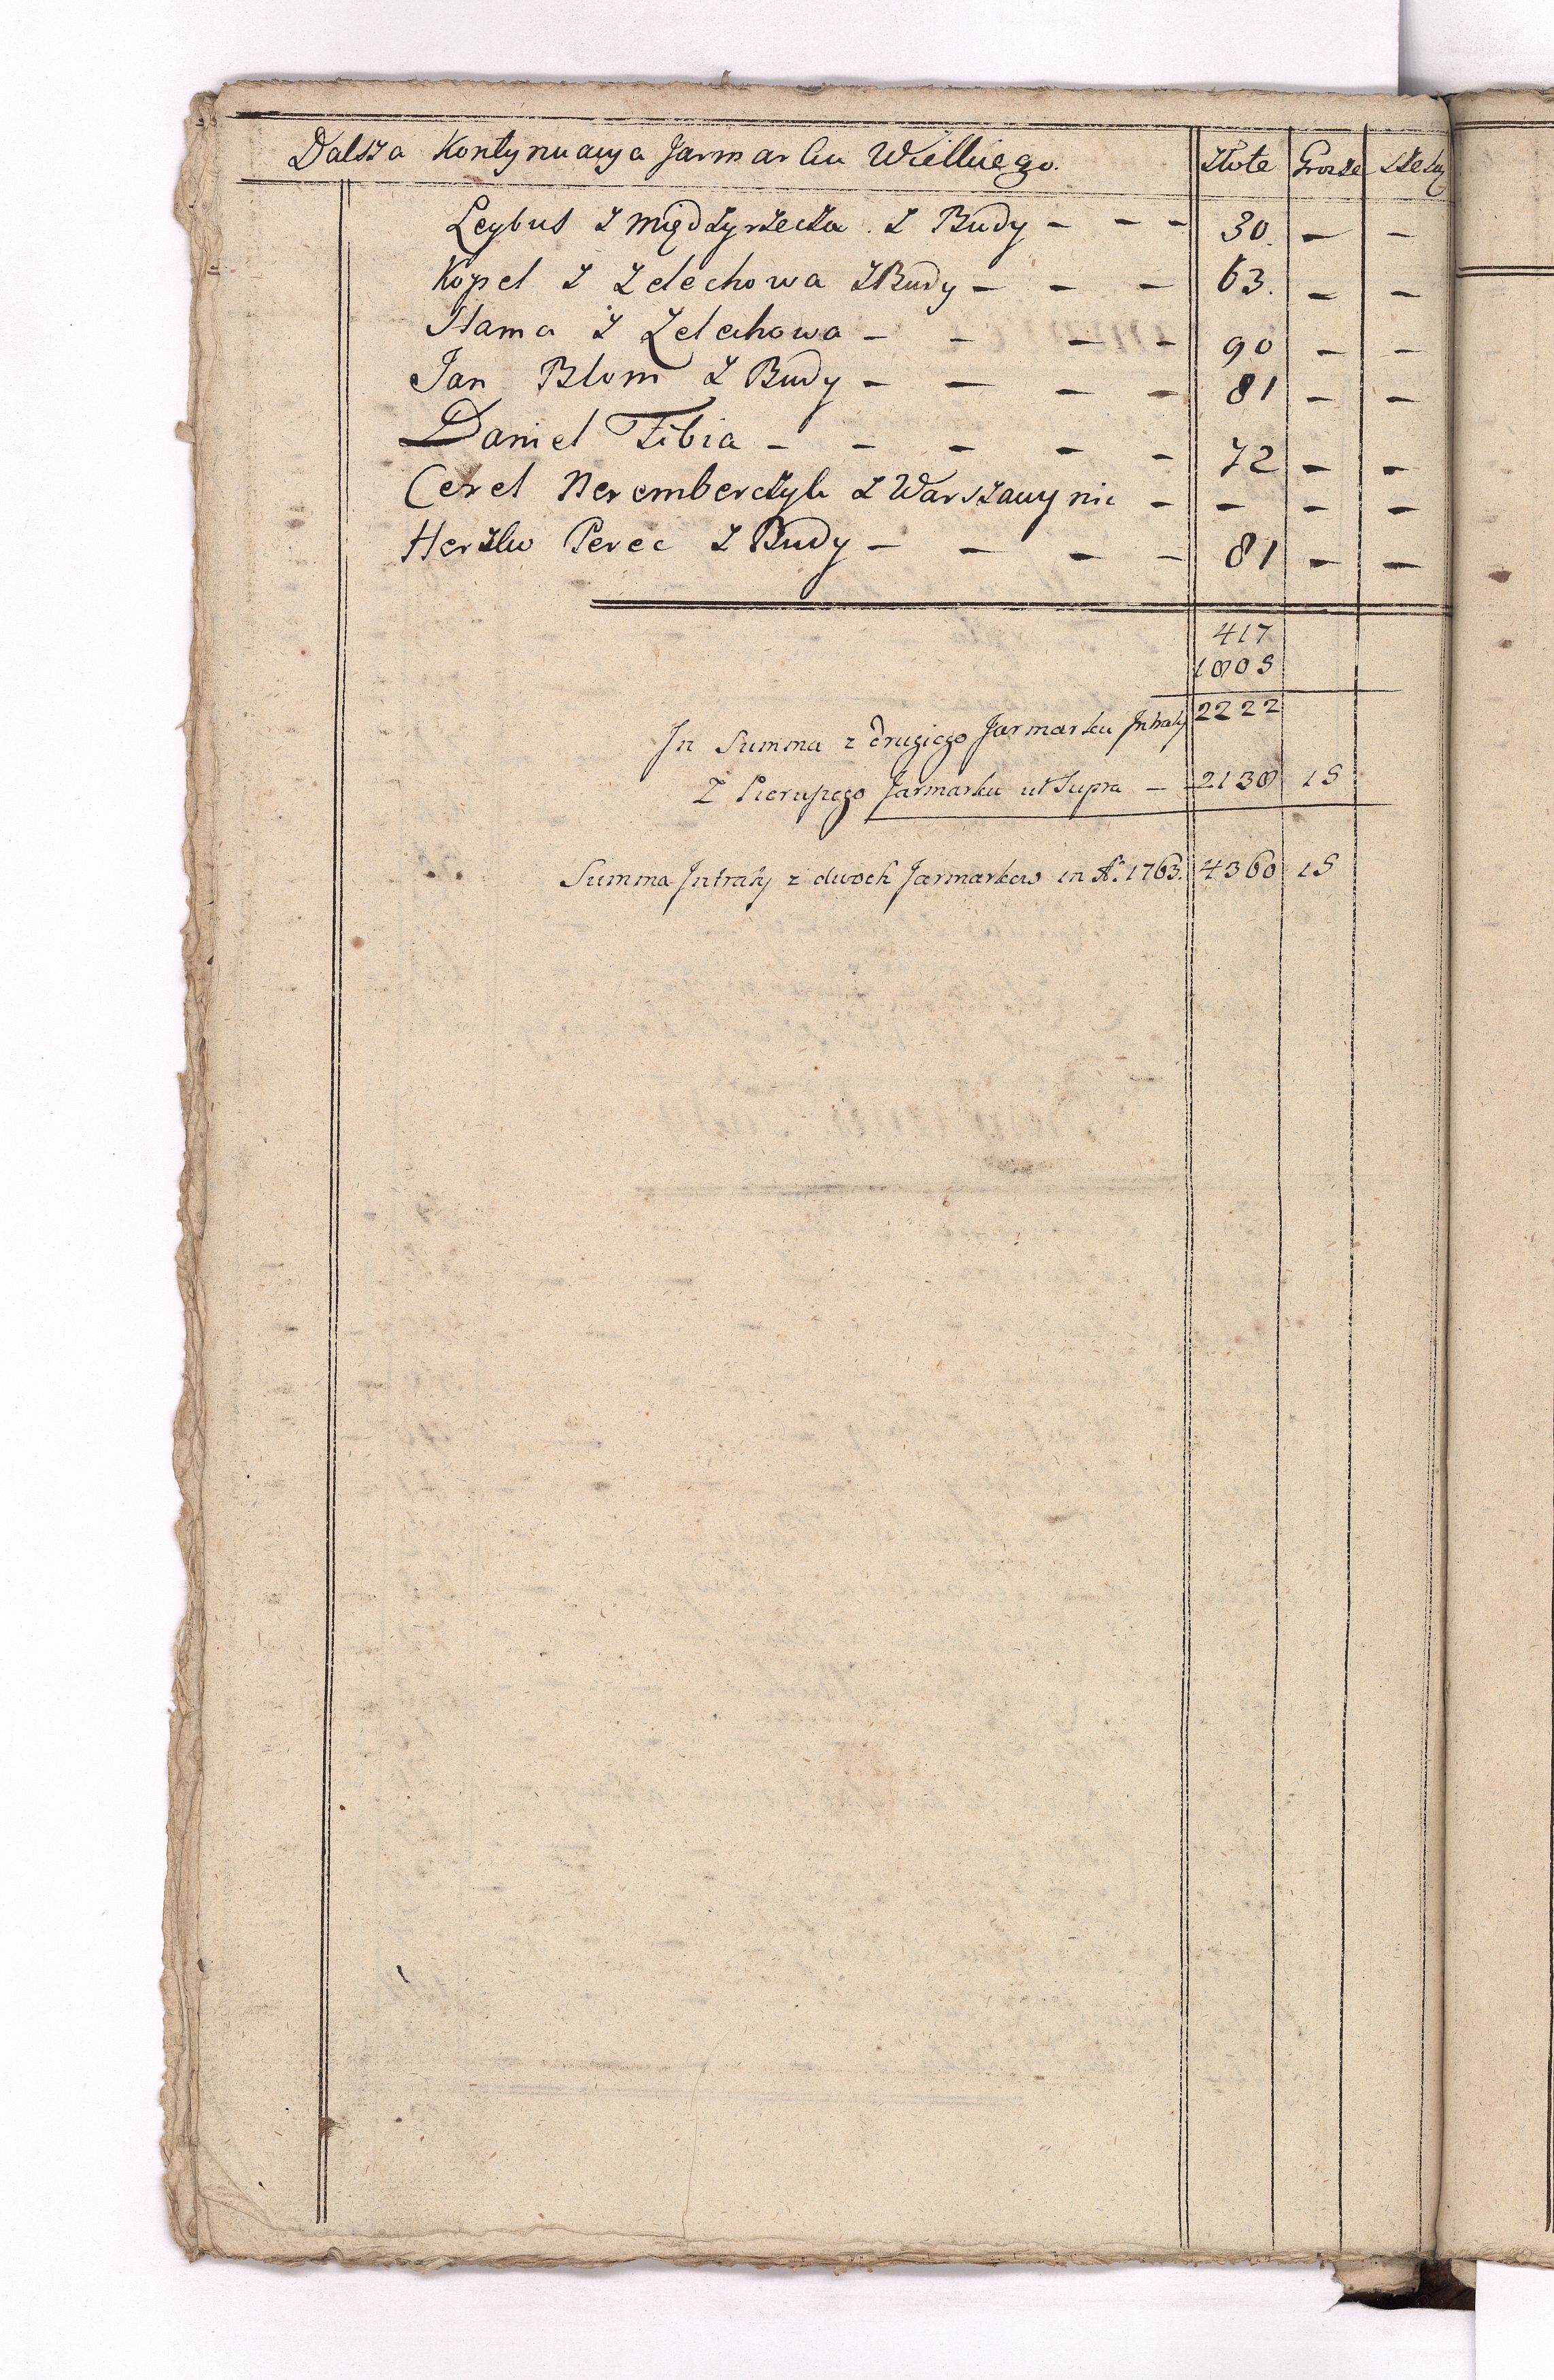 Dalsza Kontynuacya Jarmarku Wielkiego. złote Grosze szeląg
Leybus z Międzyrzecza z Budy - - - 30. - -
Kopel z Zelechowa z Budy - - - 63. - -
Szama z Zelechowa - - - - 90 - -
Jan Blom z Budy - - - - 81 - -
Daniel Fibia - - - - - 72 - -
Cerel Neremberczyk z Warszawy nic - - - -
Herszko Perec z Budy - - - - 81 - -
417
1805
In Summa z drugiego Jarmarku Intraty 2222
Z Pierwszego Jarmarku ut Supra - 2138 15
Summa Intraty z dwoch Jarmarkow in Ao. 1763. 4360 15